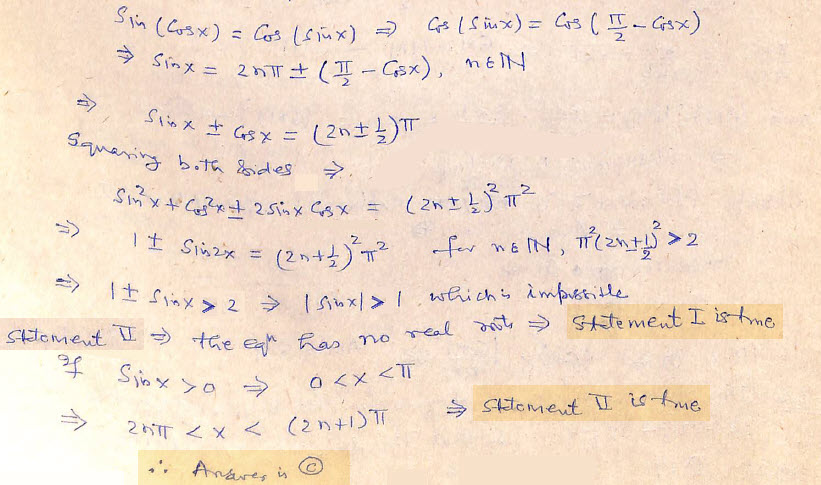 Sin (Cosx) = Cos (Sinx) ⇒ Cos (Sinx) = Cos (π/2 - Cosx)
⇒ Sinx = 2nπ ± (π/2 - Cosx), n∈ℕ
⇒ Sinx ± Cosx = (2n ± 1/2)π
Squaring both sides ⇒
Sin²x + Cos²x ± 2 Sinx Cosx = (2n ± 1/2)² π²
⇒ 1 ± Sin2x = (2n + 1/2)² π² for n∈ℕ, π²(2n ± 1/2)² > 2
⇒ 1 ± Sinx > 2 ⇒ |Sinx| > 1 which is impossible
Statement II ⇒ the eqn has no real roots ⇒ Statement I is true
If Sinx > 0 ⇒ 0 < x < π
⇒ 2nπ < x < (2n+1)π ⇒ Statement II is true
∴ Answer is ⓒ